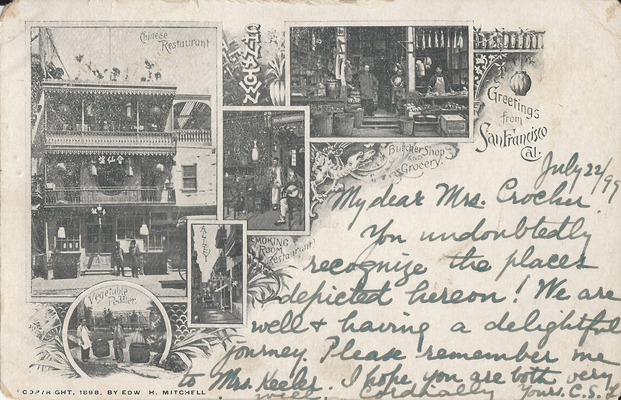 Chinese
Restaurant
Butcher Shop
AND
Grocery.
Greetings
from
San Francisco
Cal.
SMOKING
ROOM
(Restaurant)
ALLEY
Vegetable
Peddler.
July 22/99
My dear Mrs. Crocker,
You undoubtedly
recognize the places
depicted hereon! We are
well & having a delightful
journey. Please remember me
to Mrs. Keeler. I hope you are both very
well. Cordially Yours. C.S.
COPYRIGHT, 1898, BY EDW. H. MITCHELL